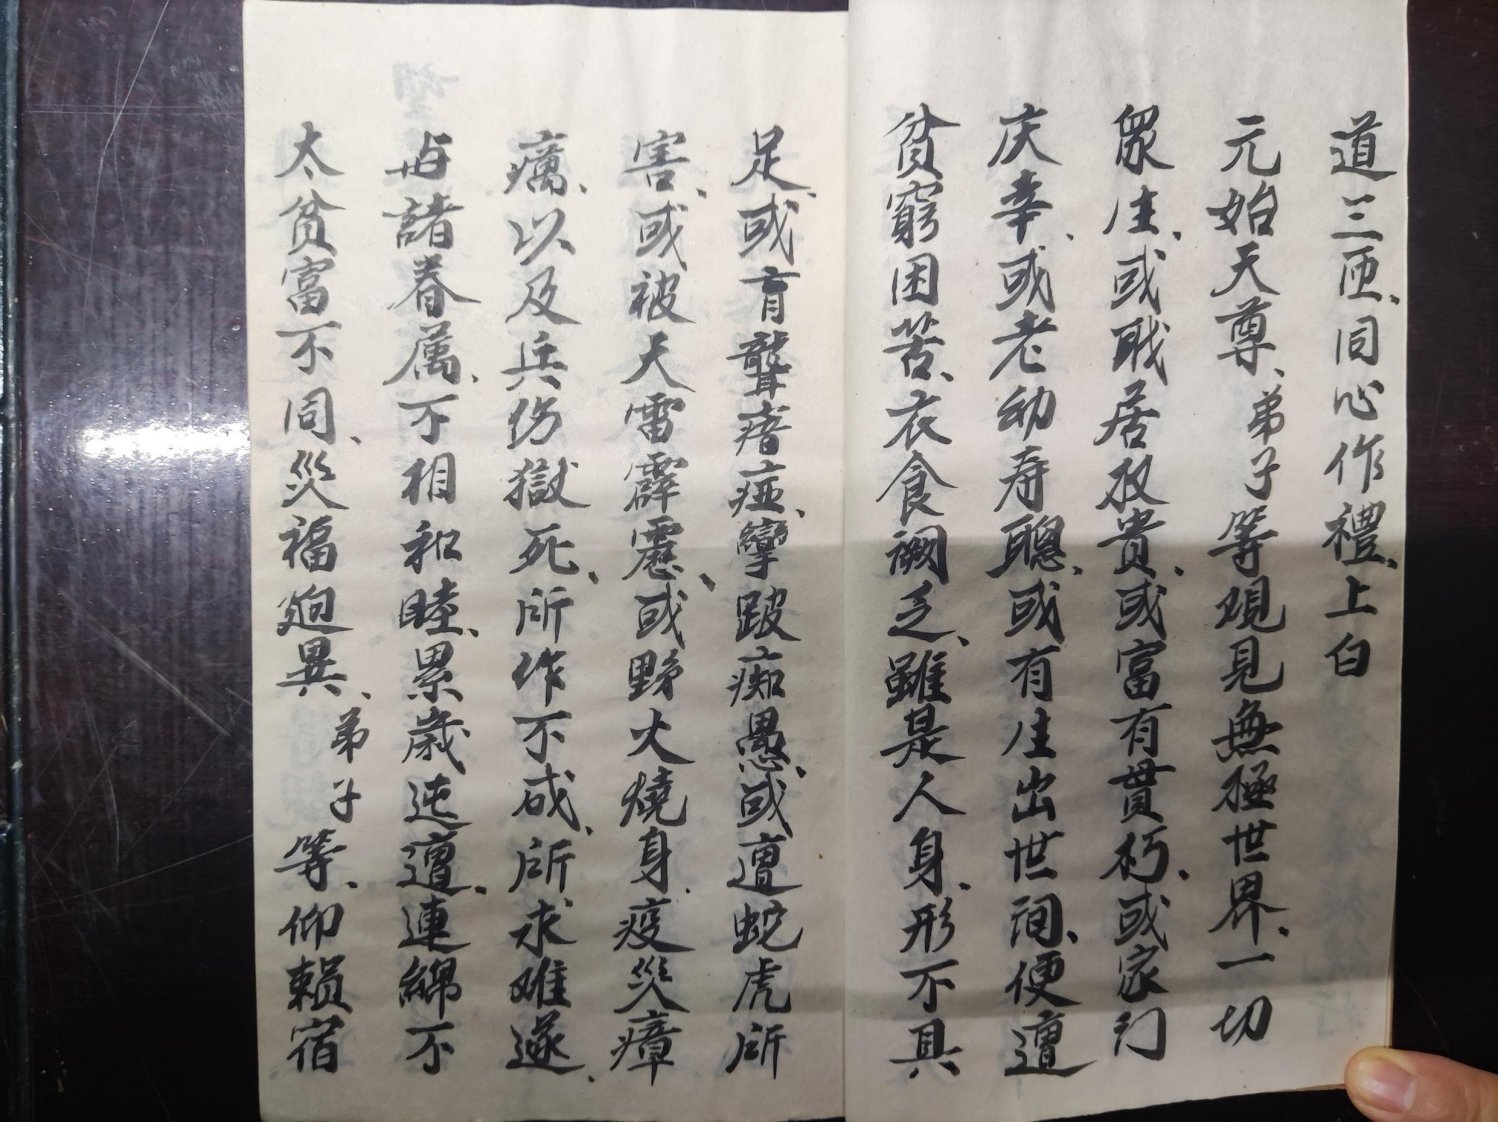 道三匝、同心作禮、上白
元始天尊、弟子等覌見無極世界、一切
眾生、或戝居权贵、或富有贯朽、或家门
庆幸、或老幼寿聰、或有生出世间、便遭
貧窮困苦、衣食阙乏、雖是人身、形不具
足、或盲聾瘖瘂、孿跛痴愚、或遭蛇虎所
害、或被天雷霹靂、或野火燒身、疫災瘴
癘、以及兵伤獄死、所作不成、所求难遂、
与諸眷属、不相和睦、累歲迍邅、連綿不
太、貧富不同、災福逈異、弟子等、仰頼宿